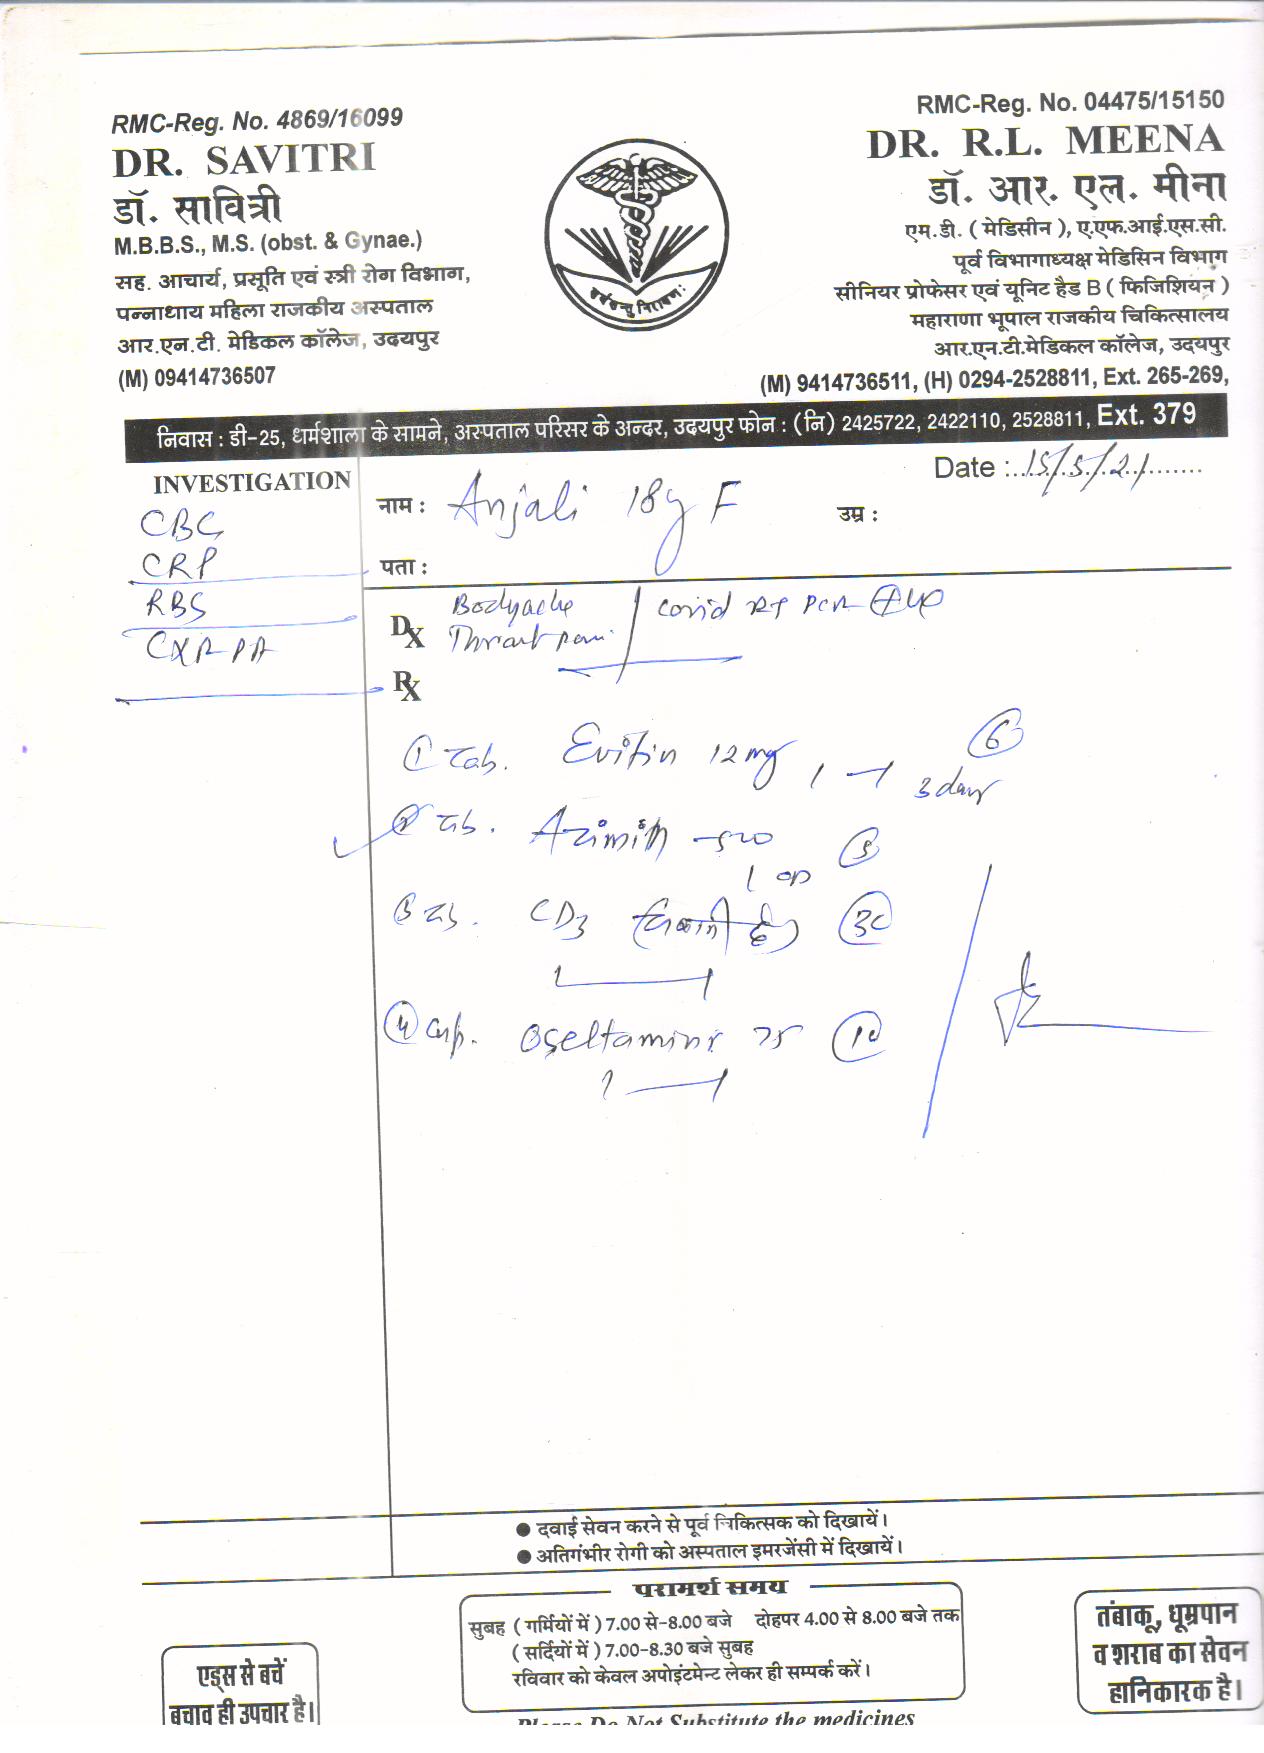 RMC-Reg. No. 4869/16099
DR. SAVITRI
डॉ. सावित्री
M.B.B.S., M.S. (obst. & Gynae.)
सह. आचार्य, प्रसूति एवं स्त्री रोग विभाग,
पन्नाधाय महिला राजकीय अस्पताल
आर.एन.टी. मेडिकल कॉलेज, उदयपुर
(M) 09414736507
RMC-Reg. No. 04475/15150
DR. R.L. MEENA
डॉ. आर. एल. मीना
एम.डी. ( मेडिसीन ), ए.एफ.आई.एस.सी.
पूर्व विभागाध्यक्ष मेडिसिन विभाग
सीनियर प्रोफेसर एवं यूनिट हैड B ( फिजिशियन )
महाराणा भूपाल राजकीय चिकित्सालय
आर.एन.टी.मेडिकल कॉलेज, उदयपुर
(M) 9414736511, (H) 0294-2528811, Ext. 265-269,
निवास : डी-25, धर्मशाला के सामने, अस्पताल परिसर के अन्दर, उदयपुर फोन : (नि) 2425722, 2422110, 2528811, Ext. 379
Date : 15/5/21
INVESTIGATION
CBC
CRP
RBS
CXR-PA
नाम : Anjali 18y F उम्र :
पता :
Dx Bodyache
Throat pain
Covid RT PCR
Rx
1 Tab. 12 mg 1 — 1 3 day 6
2 Tab. 500 5
1 OD
3 Tab. CD3 30
4 Cap. 75 10
1 — 1
● दवाई सेवन करने से पूर्व चिकित्सक को दिखायें।
● अतिगंभीर रोगी को अस्पताल इमरजेंसी में दिखायें।
परामर्श समय
सुबह ( गर्मियों में ) 7.00 से-8.00 बजे दोहपर 4.00 से 8.00 बजे तक
( सर्दियों में ) 7.00-8.30 बजे सुबह
रविवार को केवल अपोइंटमेन्ट लेकर ही सम्पर्क करें।
एड्स से बचें
बचाव ही उपचार है।
तंबाकू, धूम्रपान
व शराब का सेवन
हानिकारक है।
Please Do Not Substitute the medicines